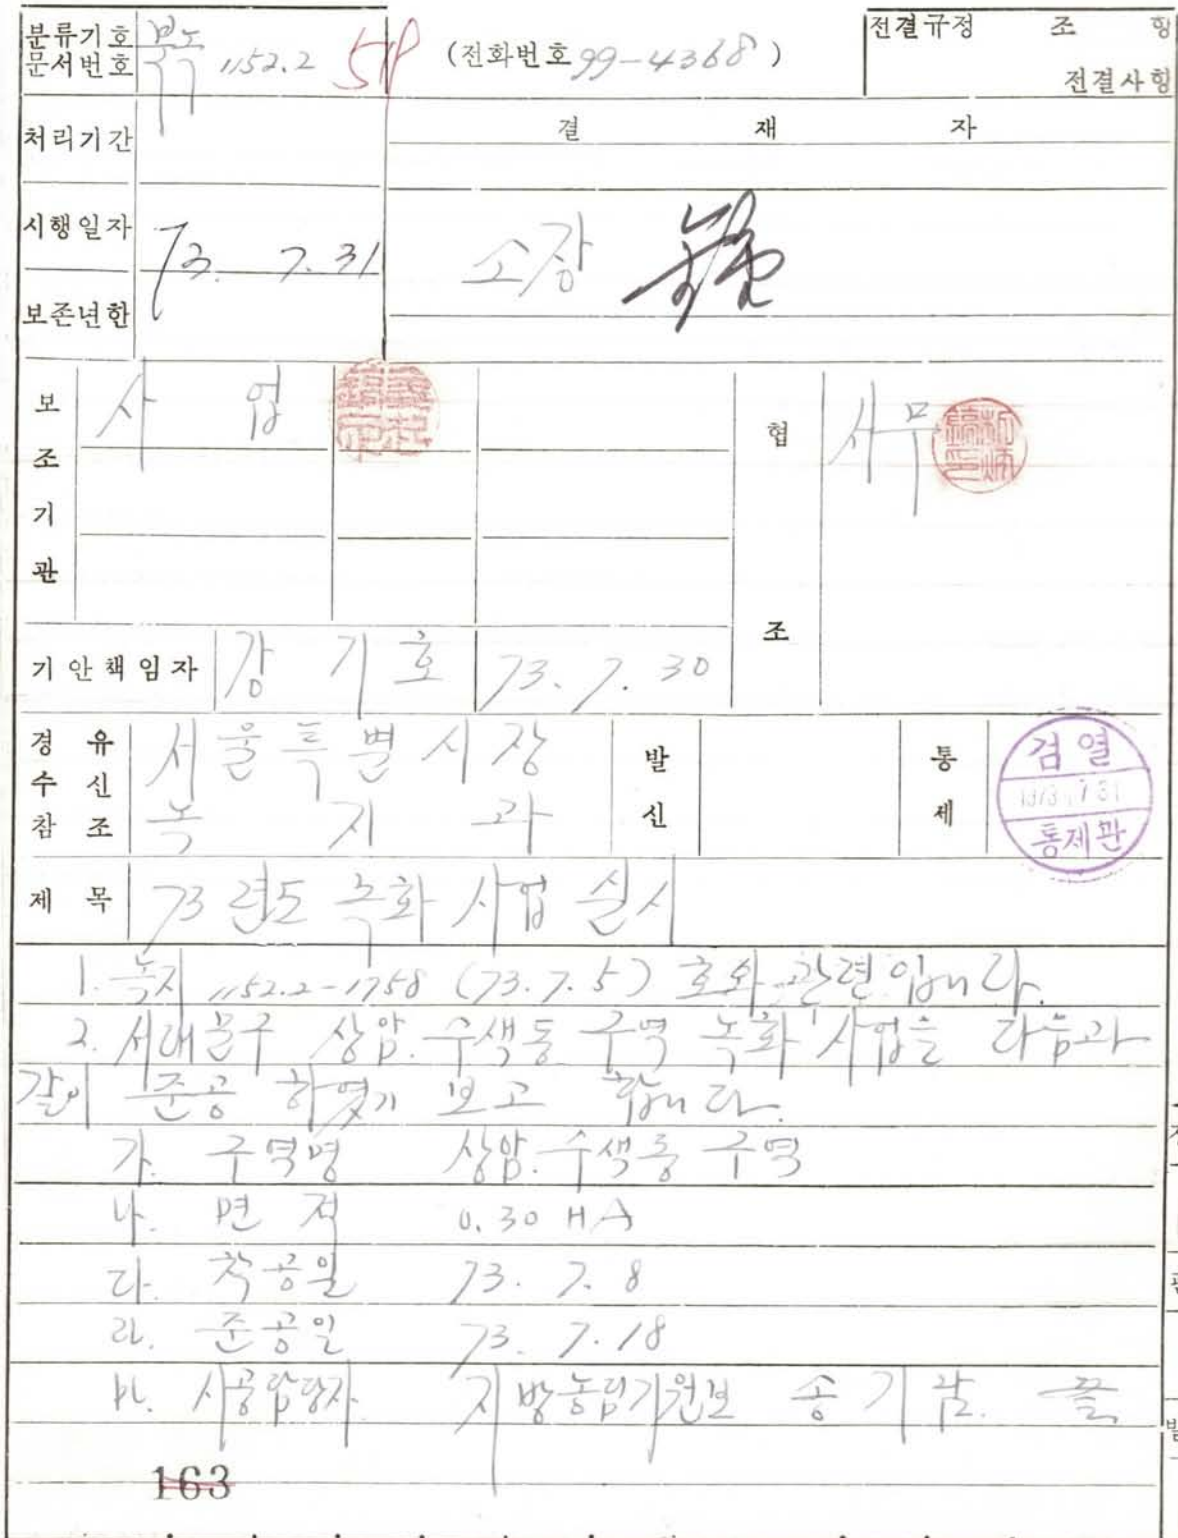 분류기호 문서번호 북녹 1152.2 (전화번호 99-4368)
전결규정 조 항
전결사항
처리기간
결 재 자
시행일자 73. 7. 31
소장
보존년한
보조기관 사 업
협조 서무
기안책임자 강 기 호 73. 7. 30
경유 수신 참조
서울특별시장
녹 지 과
발신
통제
검열
1973. 7. 31
통제관
제 목 73년도 녹화 사업 실시
1. 녹지 1152.2-1758 (73.7.5) 호와 관련입니다.
2. 서대문구 상암.수색동 구역 녹화 사업을 다음과
같이 준공 하였기 보고 합니다.
가. 구역명 상암.수색동 구역
나. 면 적 0.30 HA
다. 착공일 73. 7. 8
라. 준공일 73. 7. 18
마. 시공담당자 지방농림기원보 송 기 끝
163